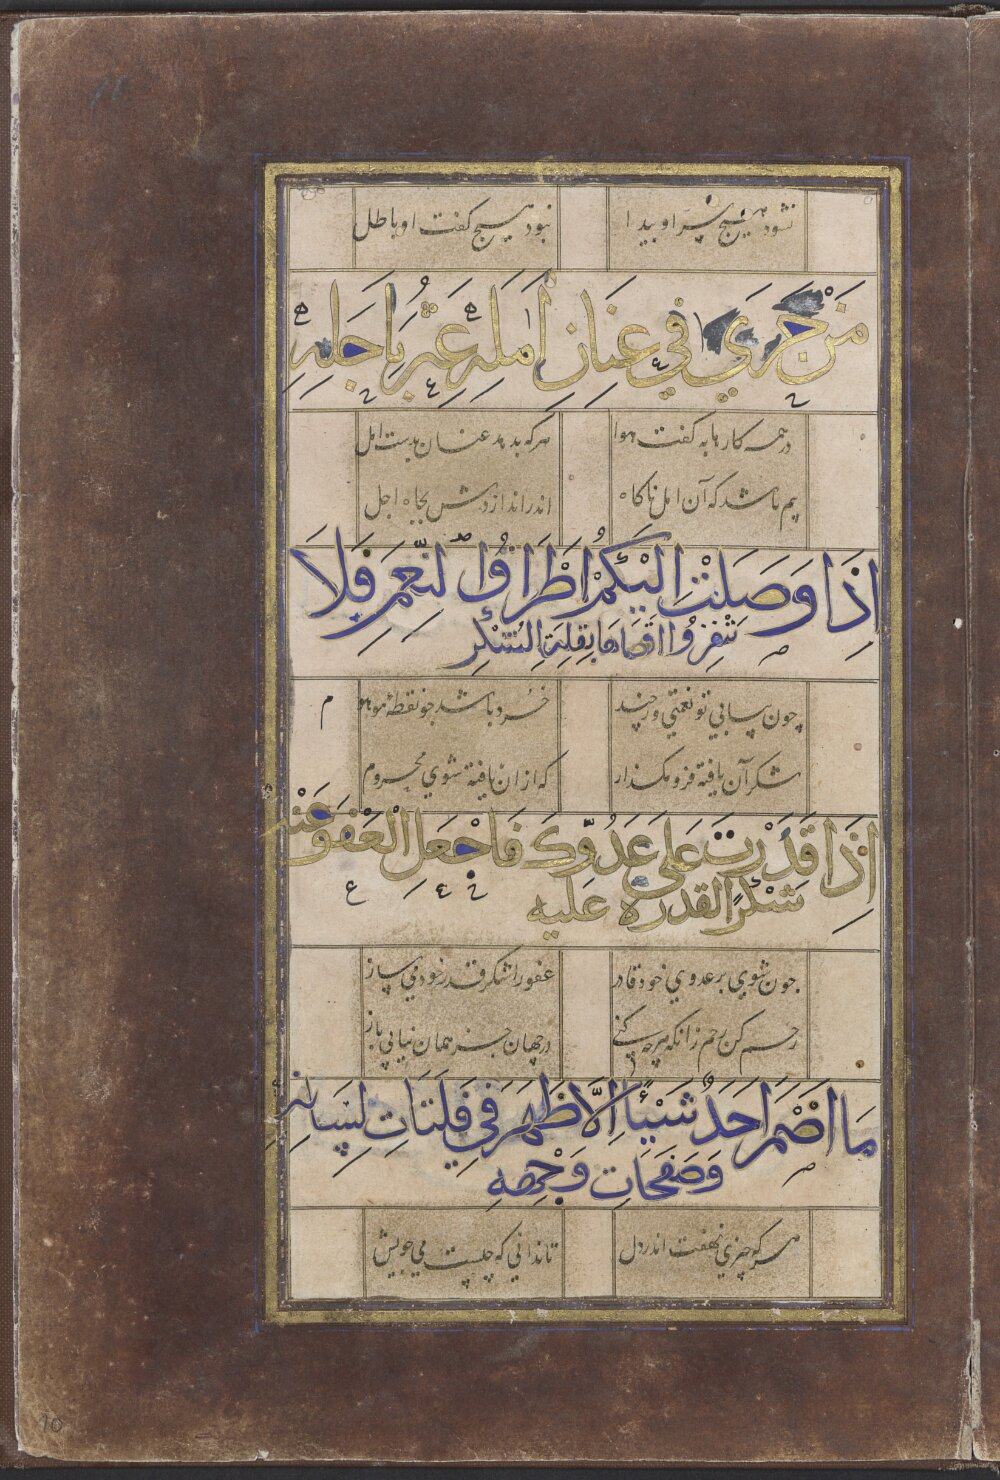 نشود هیچ سر او پیدا نبود هیچ گفت او باطل
مَنْ جَرَي فِي عِنَانِ اَمَلِهِ عَثُرَ بِاَجَلِهِ
در همه کارها به کفت هوا هرکه بدهد عنان بدست امل
بیم باشد که آن امل ناکاه اندر اندازدش بچاه اجل
اِذَا وَصَلَتْ اِلَيْكُمْ اَطْرَافُ النِّعَمِ فَلَا
تُنَفِّرُوا اَقْصَاهَا بِقِلَّةِ الشُّكْرِ
چون بیابي تو نعمتي ورچند خُرد باشد چو نقطهٔ موهوم
شکر آن یافته فرو مکذار که از آن یافته شوي محروم
اِذَا قَدَرْتَ عَلَي عَدُوِّكَ فَاجْعَلِ الْعَفْوَ عَنْهُ
شُكْرًا لِلْقُدْرَةِ عَلَيْهِ
چون شوي بر عدوي خود قادر عفو را شکر قدر خود مي ساز
رحم کن رحم زانکه هرچه کني در جهان جز همان نیابي باز
مَا اَضْمَرَ اَحَدٌ شَيْئًا اِلَّا ظَهَرَ فِي فَلَتَاتِ لِسَانِهِ
وَصَفَحَاتِ وَجْهِهِ
هرکه چیزي نهفت اندر دل تا نداني که چیست مي جویش
10